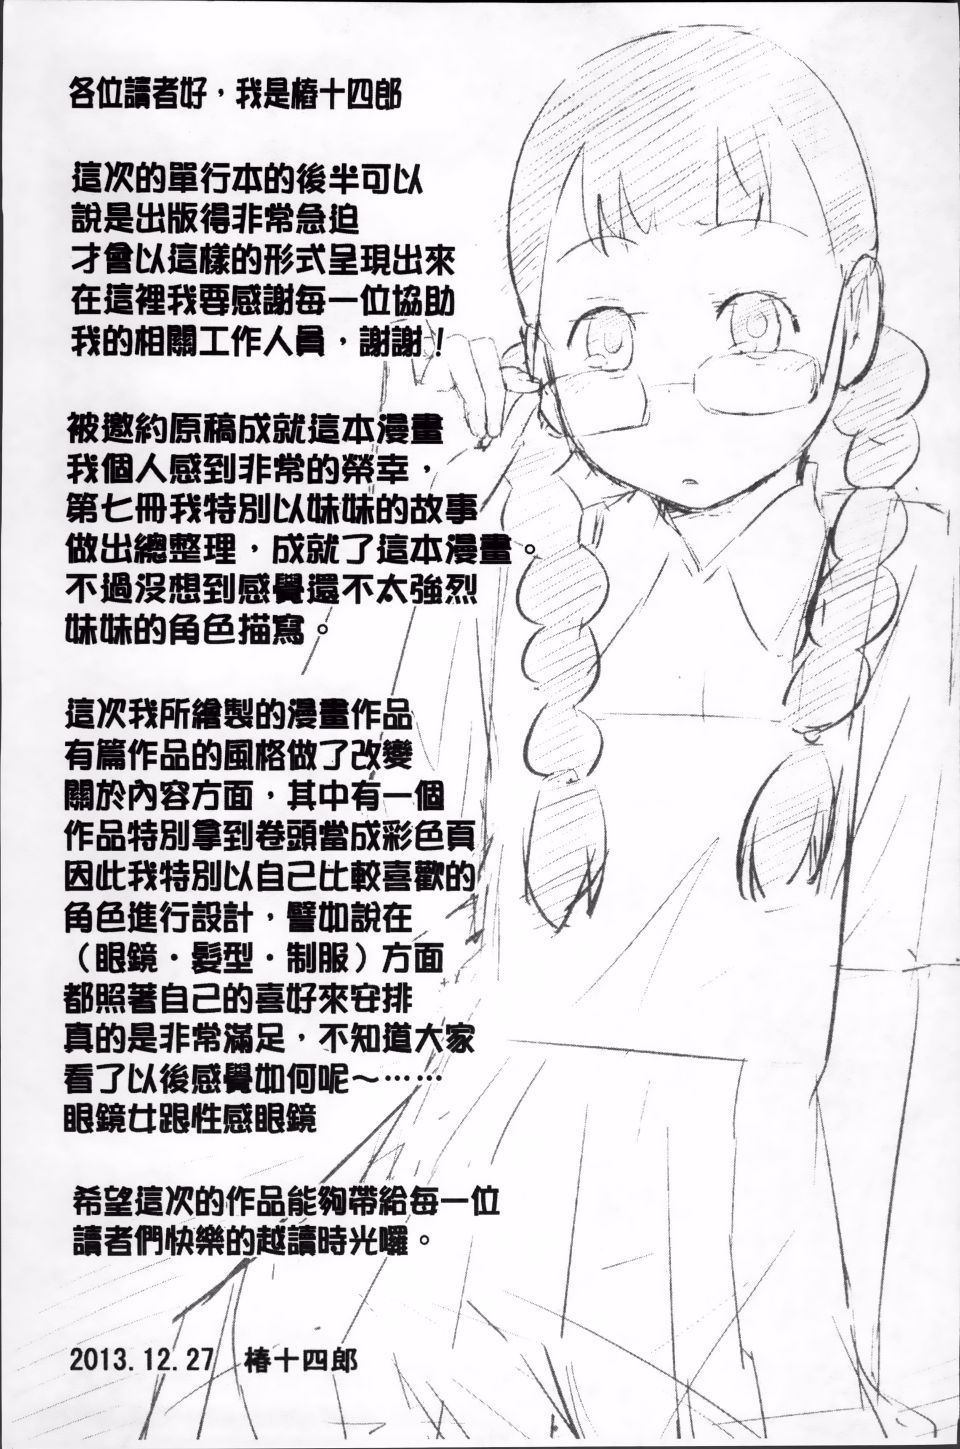 各位讀者好，我是椿十四郎
這次的單行本的後半可以
說是出版得非常急迫
才會以這樣的形式呈現出來
在這裡我要感謝每一位協助
我的相關工作人員，謝謝！
被邀約原稿成就這本漫畫
我個人感到非常的榮幸，
第七冊我特別以妹妹的故事
做出總整理，成就了這本漫畫。
不過沒想到感覺還不太強烈
妹妹的角色描寫。
這次我所繪製的漫畫作品
有篇作品的風格做了改變
關於內容方面，其中有一個
作品特別拿到卷頭當成彩色頁
因此我特別以自己比較喜歡的
角色進行設計，譬如說在
（眼鏡・髮型・制服）方面
都照著自己的喜好來安排
真的是非常滿足，不知道大家
看了以後感覺如何呢～……
眼鏡女跟性感眼鏡
希望這次的作品能夠帶給每一位
讀者們快樂的越讀時光囉。
2013.12.27　椿十四郎